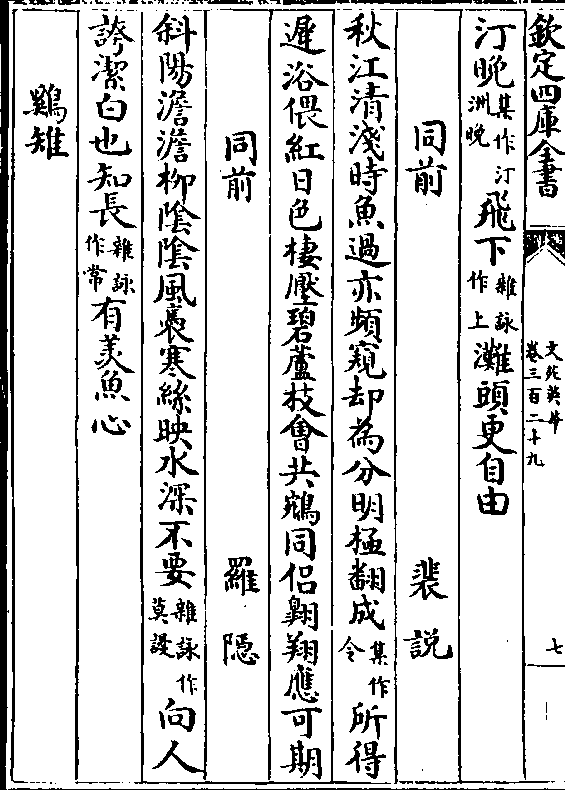 欽定四庫全書
文苑英華
卷三百二十九
七
汀晚集作汀洲晚飛下雜詠作上灘頭更自由
同前 裴說
秋江清淺時魚過亦頻窺却為分明極翻成集作令所得
遲浴偎紅日色棲壓碧蘆枝會共鵷同侶翺翔應可期
同前 羅隱
斜陽澹澹柳陰陰風裊寒絲映水深不要雜詠作莫謾向人
誇潔白也知長雜詠作常有羨魚心
鷄雉